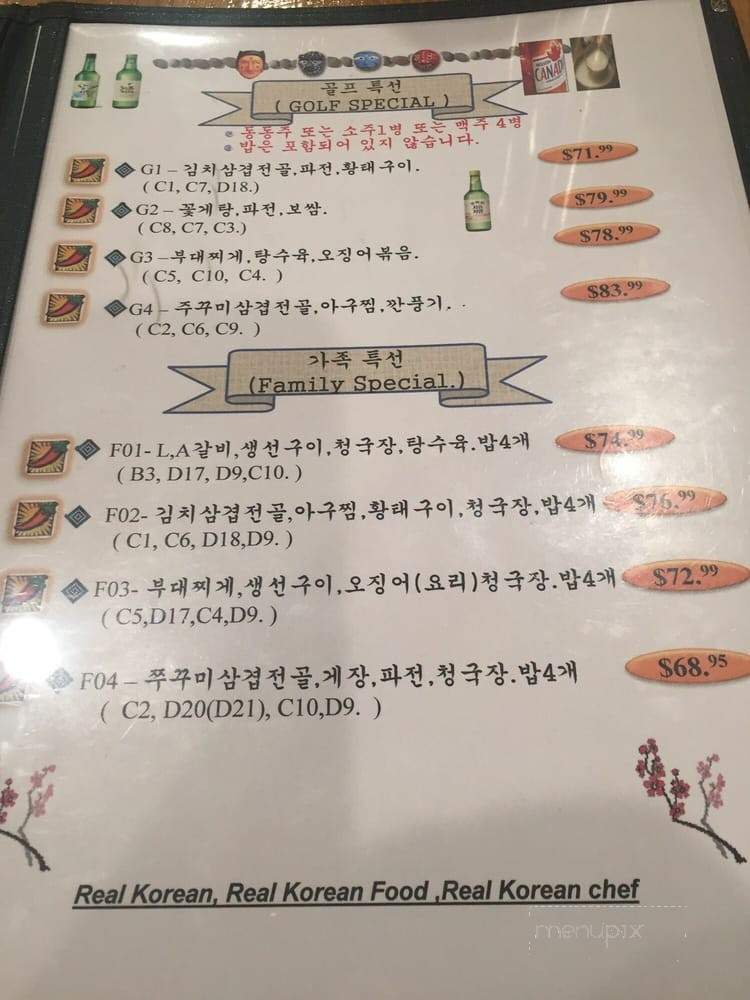 골프 특선
( GOLF SPECIAL )
CANADI
동동주 또는 소주1병 또는 맥주 4병
밥은 포함되어 있지 않습니다.
G1 – 김치삼겹전골,파전,황태구이.
$71.99
( C1, C7, D18.)
G2 – 꽃게탕,파전,보쌈.
$79.99
( C8, C7, C3.)
G3 –부대찌게,탕수육,오징어볶음.
$78.99
( C5, C10, C4. )
G4 – 주꾸미삼겹전골,아구찜,깐풍기.
$83.99
( C2, C6, C9. )
가족 특선
(Family Special.)
F01- L,A갈비,생선구이,청국장,탕수육.밥4개
$74.99
( B3, D17, D9,C10. )
F02- 김치삼겹전골,아구찜,황태구이,청국장,밥4개
$76.99
( C1, C6, D18,D9. )
F03- 부대찌게,생선구이,오징어(요리)청국장.밥4개
$72.99
(C5,D17,C4,D9. )
F04 – 쭈꾸미삼겹전골,게장,파전,청국장.밥4개
$68.95
( C2, D20(D21), C10,D9. )
Real Korean, Real Korean Food ,Real Korean chef
menupix